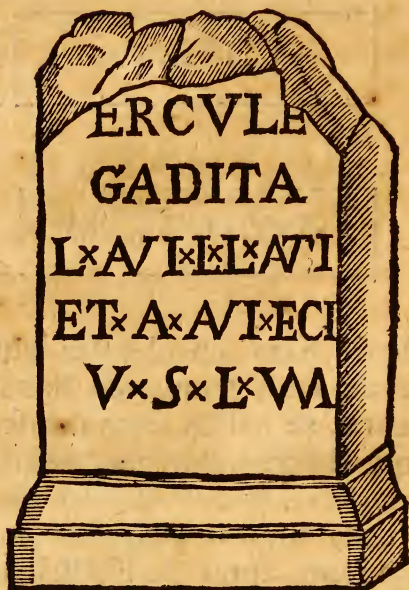 ERCVLE
GADITA
L×A/I×L×L×A/TI
ET×A×A/I×ECI
V×S×L×VM